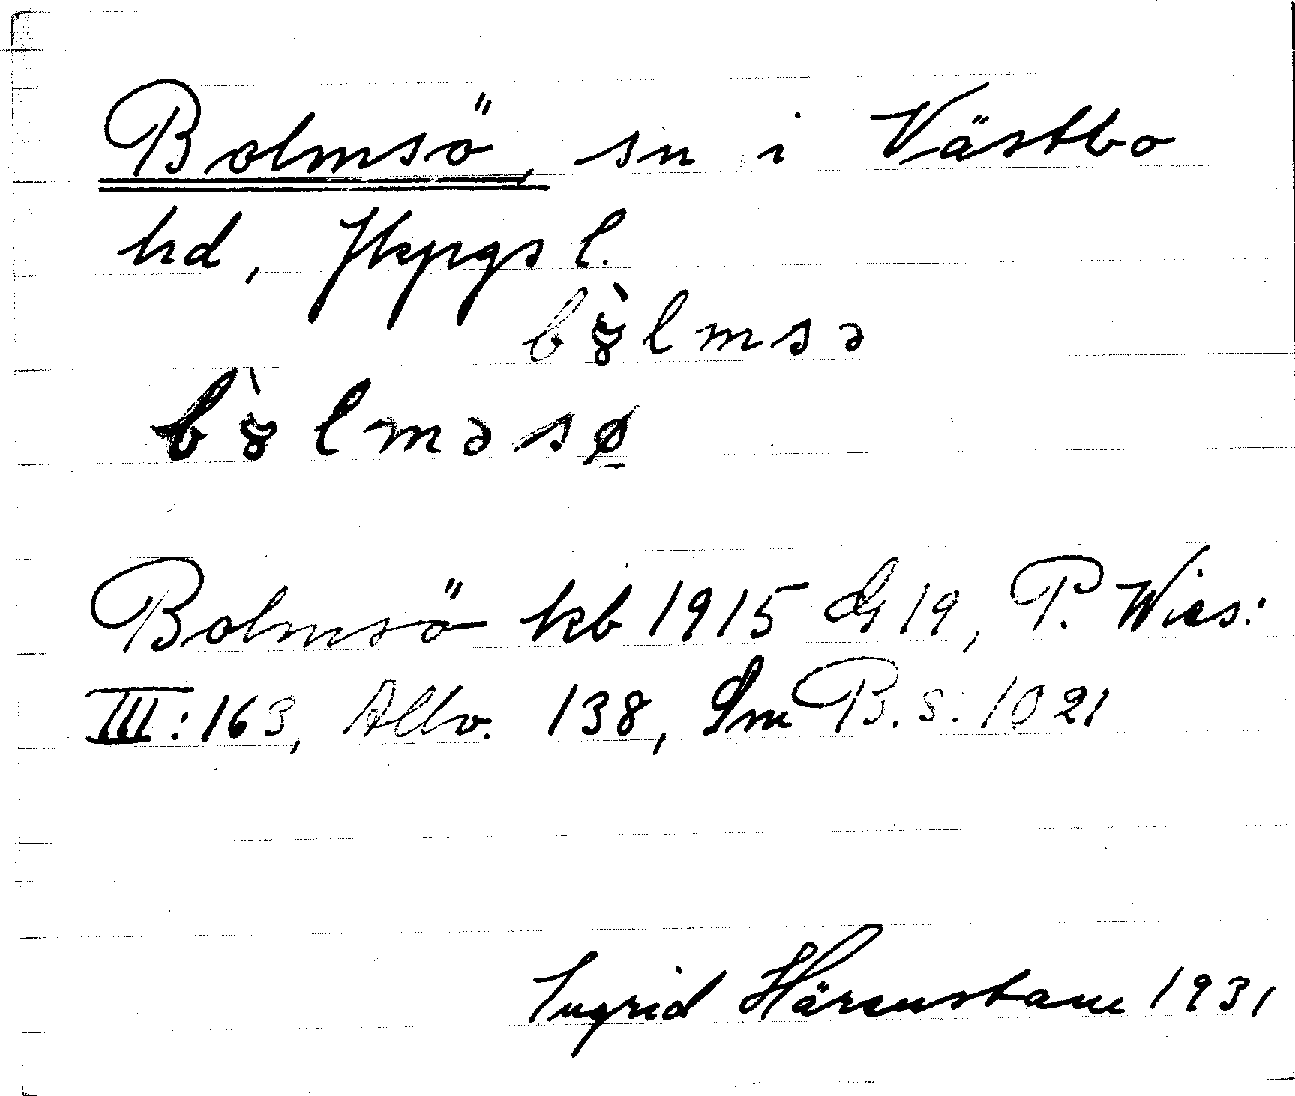 Bolmsö, sn i Västbo
hd, Jkpgs l.
b8̀lmsə
b8̀lməsø
Bolmsö kb 1915 G 19, P. Wies:
III: 163, Allv. 138, Sm B. s. 1021
Ingrid Härenstam 1931